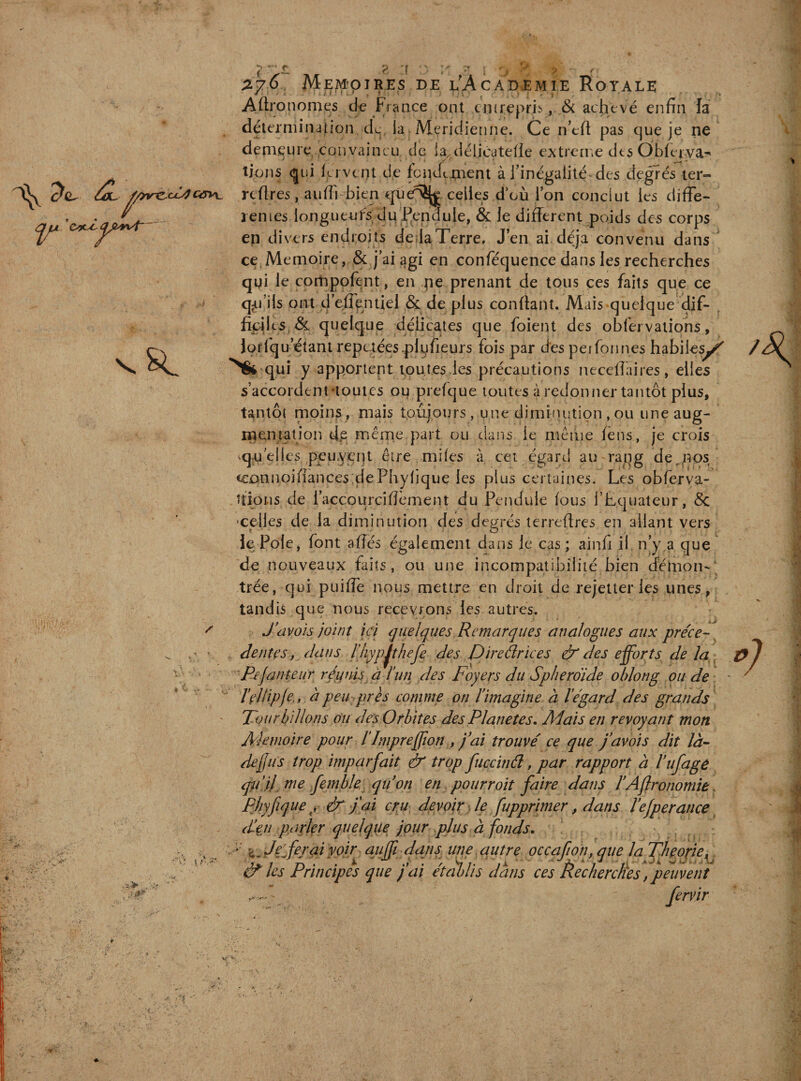 276 MEMOIRES DE L'ACADEMIE ROYALE
Aſtronomes de France ont entrepris, & achevé enfin la
détermination de la Méridienne. Ce n'eſt pas que je ne
demeure convaincu de la délicateſſe extreme des Obſerva-
tions qui ſervent de fondement à l'inégalité des degrés ter-
reſtres, auſſi-bien que celles d'où l'on conclut les diffe-
rentes longueurs du Pendule, & le different poids des corps
en divers endroits de la Terre. J'en ai déja convenu dans
ce Memoire, & j'ai agi en conſéquence dans les recherches
qui le compoſent, en ne prenant de tous ces faits que ce
qu'ils ont d'eſſentiel & de plus conſtant. Mais quelque dif-
ficiles & quelque délicates que ſoient des obſervations,
lorſqu'étant repetées pluſieurs fois par des perſonnes habiles
qui y apportent toutes les précautions neceſſaires, elles
s'accordent toutes ou preſque toutes à redonner tantôt plus,
tantôt moins, mais toûjours, une diminution, ou une aug-
mentation de même part ou dans le même ſens, je crois
qu'elles peuvent être miſes à cet égard au rang de nos
connoiſſances de Phyſique les plus certaines. Les obſerva-
tions de l'accourciſſement du Pendule ſous l'Equateur, &
celles de la diminution des degrés terreſtres en allant vers
le Pole, ſont aſſés également dans le cas; ainſi il n'y a que
de nouveaux faits, ou une incompatibilité bien démon-
trée, qui puiſſe nous mettre en droit de rejetter les unes,
tandis que nous recevrons les autres.
J'avois joint ici quelques Remarques analogues aux préce-
dentes, dans l'hypſtheſe des Directrices & des efforts de la
Peſanteur réunis à l'un des Foyers du Spheroïde oblong ou de
l'ellipſe, à peu-près comme on l'imagine à l'égard des grands
Tourbillons ou des Orbites des Planetes. Mais en revoyant mon
Memoire pour l'Impreſſion, j'ai trouvé ce que j'avois dit là-
deſſus trop imparfait & trop ſuccinct, par rapport à l'uſage
qu'il me ſemble qu'on en pourroit faire dans l'Aſtronomie
Phyſique, & j'ai cru devoir le ſupprimer, dans l'eſperance
d'en parler quelque jour plus à fonds.
Je ferai voir auſſi dans une autre occaſion, que la Theorie,
& les Principes que j'ai établis dans ces Recherches, peuvent
ſervir